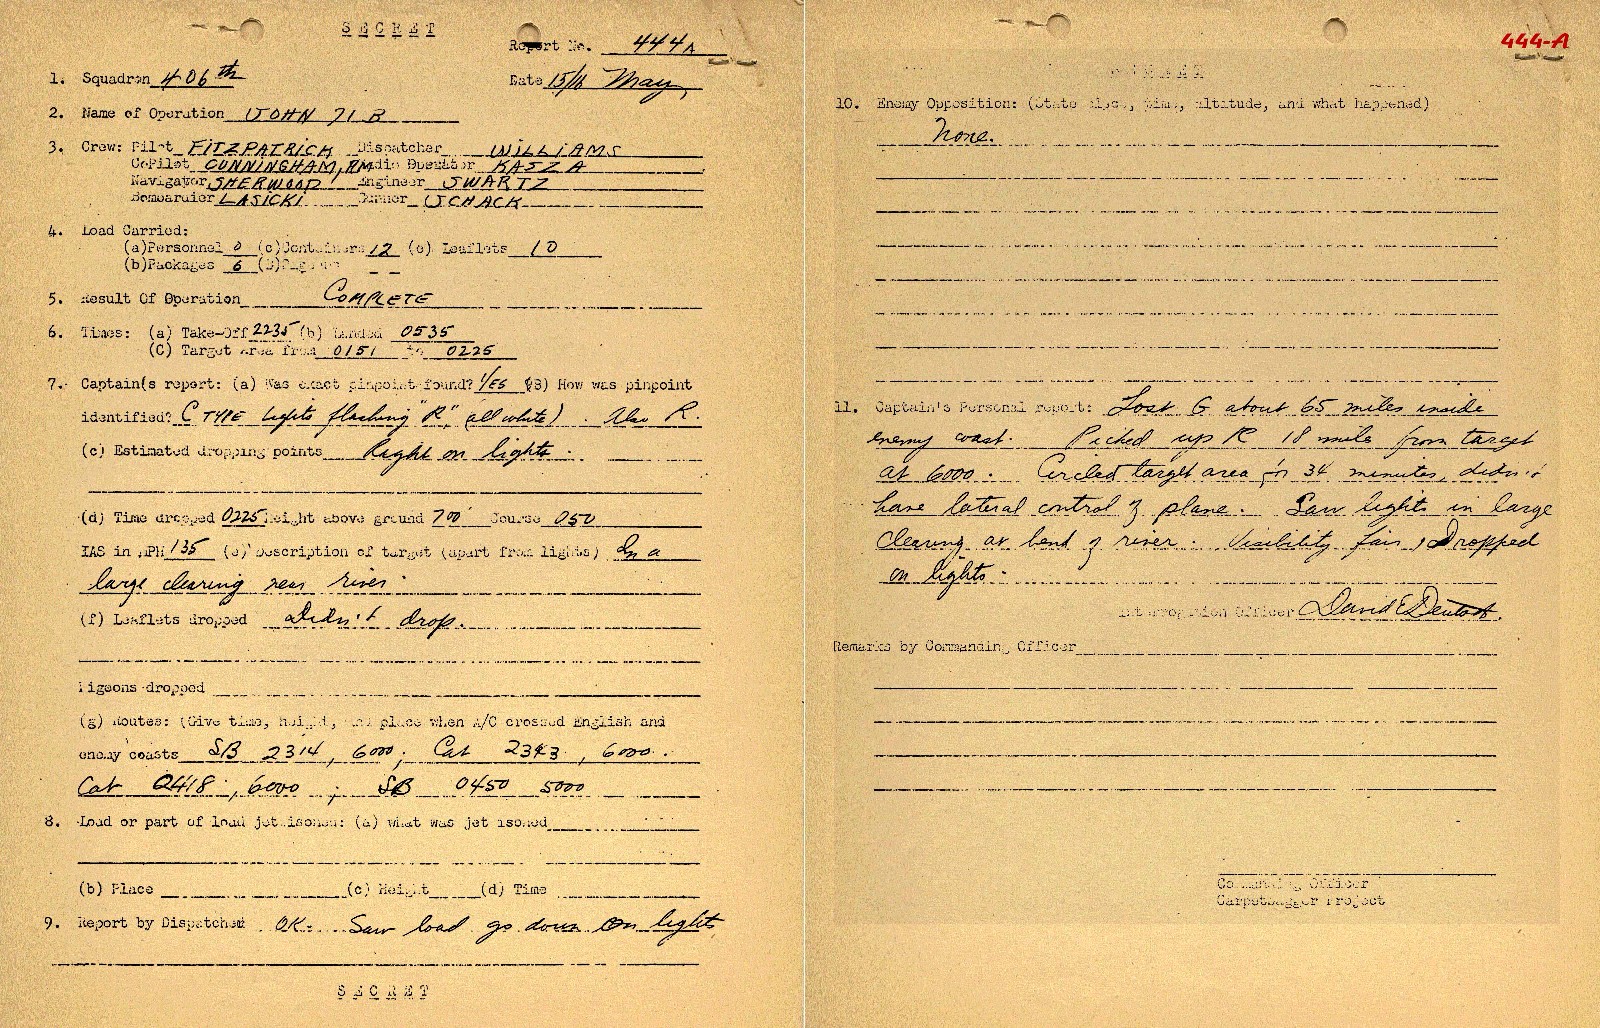 SECRET
Report No. 444A
1. Squadron 406th Date 15/16 May,
2. Name of Operation JOHN 71 B
3. Crew: Pilot FITZPATRICK Dispatcher WILLIAMS
CoPilot CUNNINGHAM, RM Radio Operator KASZA
Navigator SHERWOOD Engineer SWARTZ
Bombardier LASICKI Gunner SCHACK
4. Load Carried:
(a)Personnel 0 (c)Containers 12 (e) Leaflets 10
(b)Packages 6 (D)Pigeons - -
5. Result Of Operation COMPLETE
6. Times: (a) Take-Off 2235 (b) Landed 0535
(C) Target Area from 0151 to 0225
7. Captain(s report: (a) Was exact pinpoint found? YES (B) How was pinpoint
identified? C TYPE Lights flashing "R", (all white) . Also R.
(c) Estimated dropping points Right on lights .
(d) Time dropped 0225 Height above ground 700' Course 050
IAS in MPH 135 (e) Description of target (apart from lights) In a
large clearing near river.
(f) Leaflets dropped Didn't drop.
Pigeons dropped
(g) Routes: (Give time, height, and place when A/C crossed English and
enemy coasts SB 2314, 6000; Cat 2343, 6000.
Cat 0418, 6000 ; SB 0450 5000
8. Load or part of load jetisoned: (a) what was jetisoned
(b) Place (c) Height (d) Time
9. Report by Dispatcher OK. Saw load go down on lights
SECRET
444-A
SECRET
10. Enemy Opposition: (State place, time, altitude, and what happened)
None.
11. Captain's Personal report: Lost G about 65 miles inside
enemy coast. Picked up R 18 mile from target
at 6000. Circled target area for 34 minutes, didn't
have lateral control of plane. Saw lights in large
clearing at bend of river. Visibility fair, Dropped
on lights.
Interrogation Officer David E Deutsch.
Remarks by Commanding Officer
Commanding Officer
Carpetbagger Project